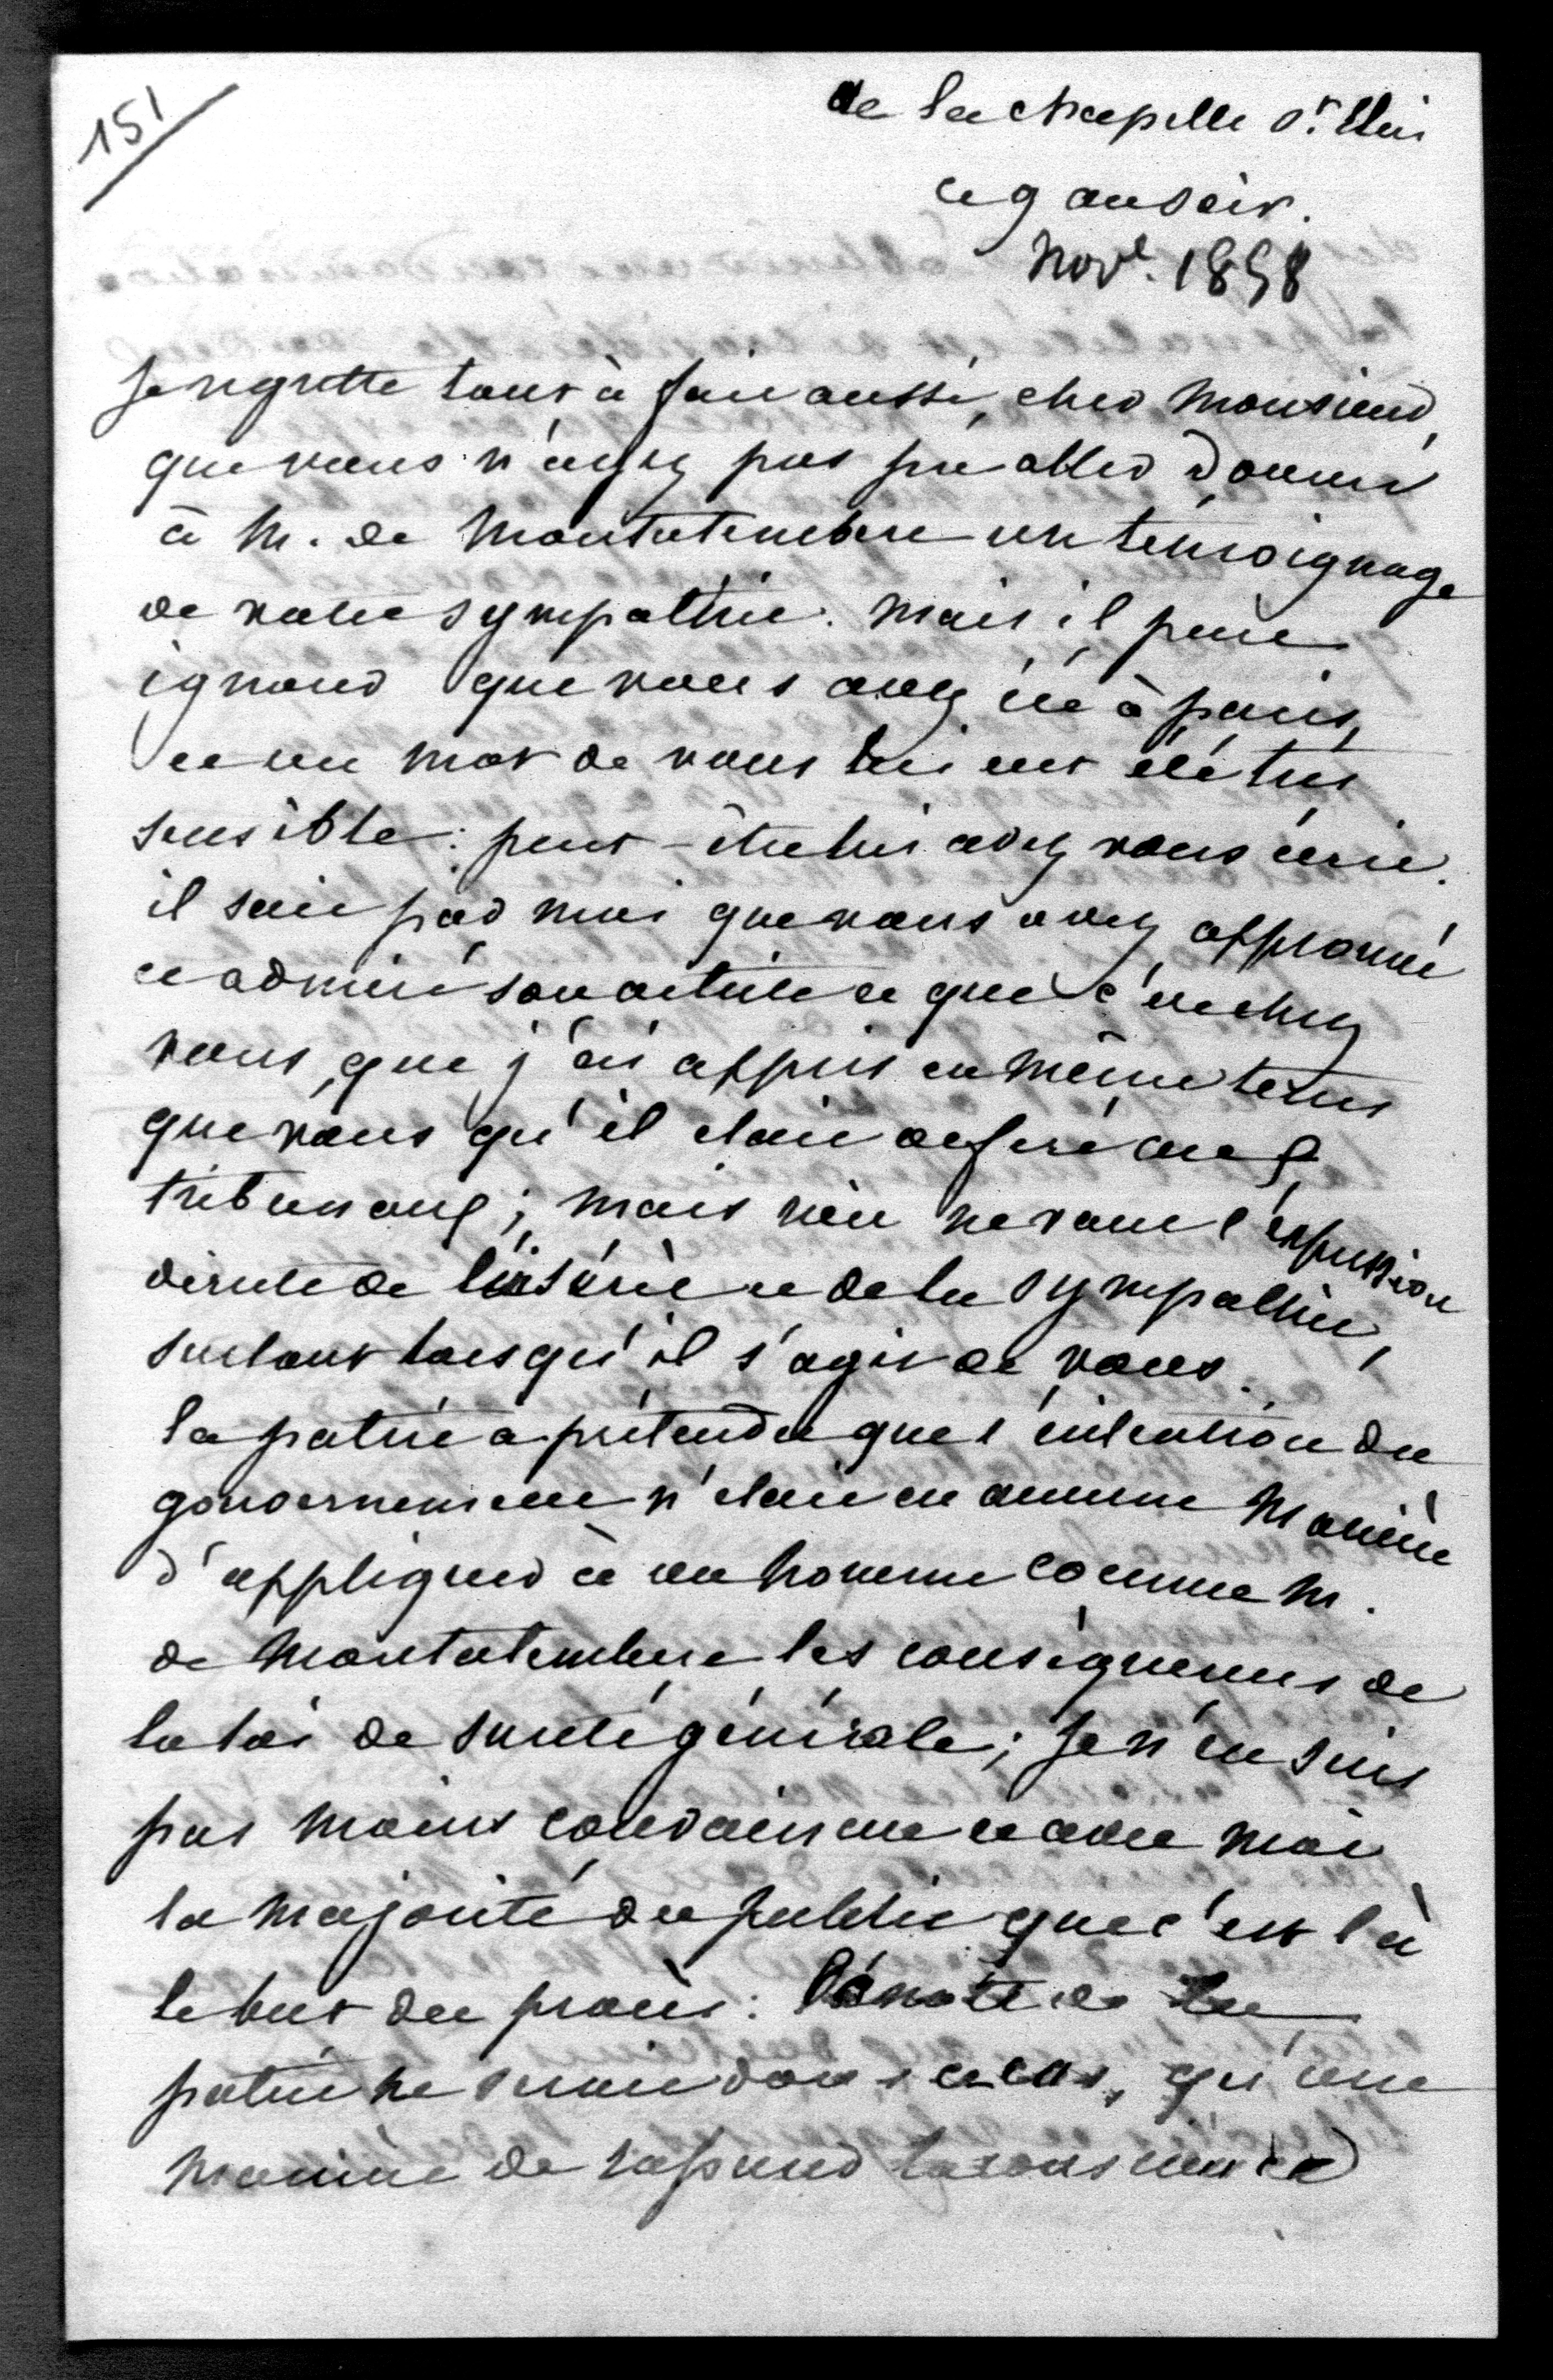 151
de la chapelle St. Eloi
ce 9 au soir.
Nov. 1858
Je regrette tout à fait aussi, cher Monsieur,
que vous n'ayez pas pu aller donner
à M. de Montalembert un temoignage
de votre sympathie. Mais il peut
ignorer que vous avez été à paris,
et un mot de vous lui eut été très
sensible : peut-être lui avez vous écrit.
il sait par moi que vous avez approuvé
et admiré son article et que c'est chez
vous, que j'ai appris en même tems
que vous qu'il etait deferé aux
tribunaux ; mais rien ne vaut l'expression
directe de l'intérêt et de la sympathie,
surtout lorsqu'il s'agit de vous.
la patrie a prétendu que l'intention du
gouvernement n'etait en aucune manière
d'appliquer à un homme comme M.
de Montalembert les conséquences de
la loi de sureté générale ; je n'en suis
pas moins convaincu et avec moi
la majorité du public que c'est là
le but du procès : la note de la
patrie ne serait dans ce cas, qu'une
manière de